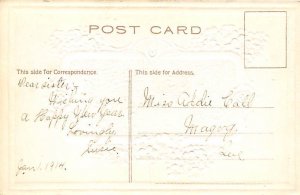 POST CARD
This side for Correspondence.
This side for Address.
Dear sister,
Wishing you
a Happy New Year.
Lovingly,
Susie.
Jan. 1, 1914.
Miss Addie Call